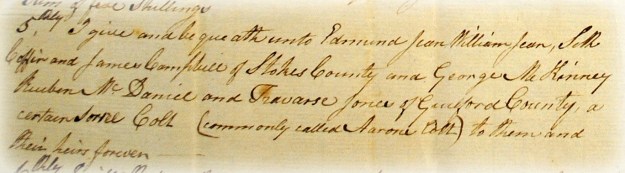 Sum of five Shillings
5thly I give and bequeath unto Edmund Jean William Jean, Seth
Coffin and James Campbell of Stokes County and George McKinney
Reuben Mc Daniel and Travarse Jones of Guilford County, a
certain sorrel Colt (commonly called Aarons Colt) to them and
their heirs forever